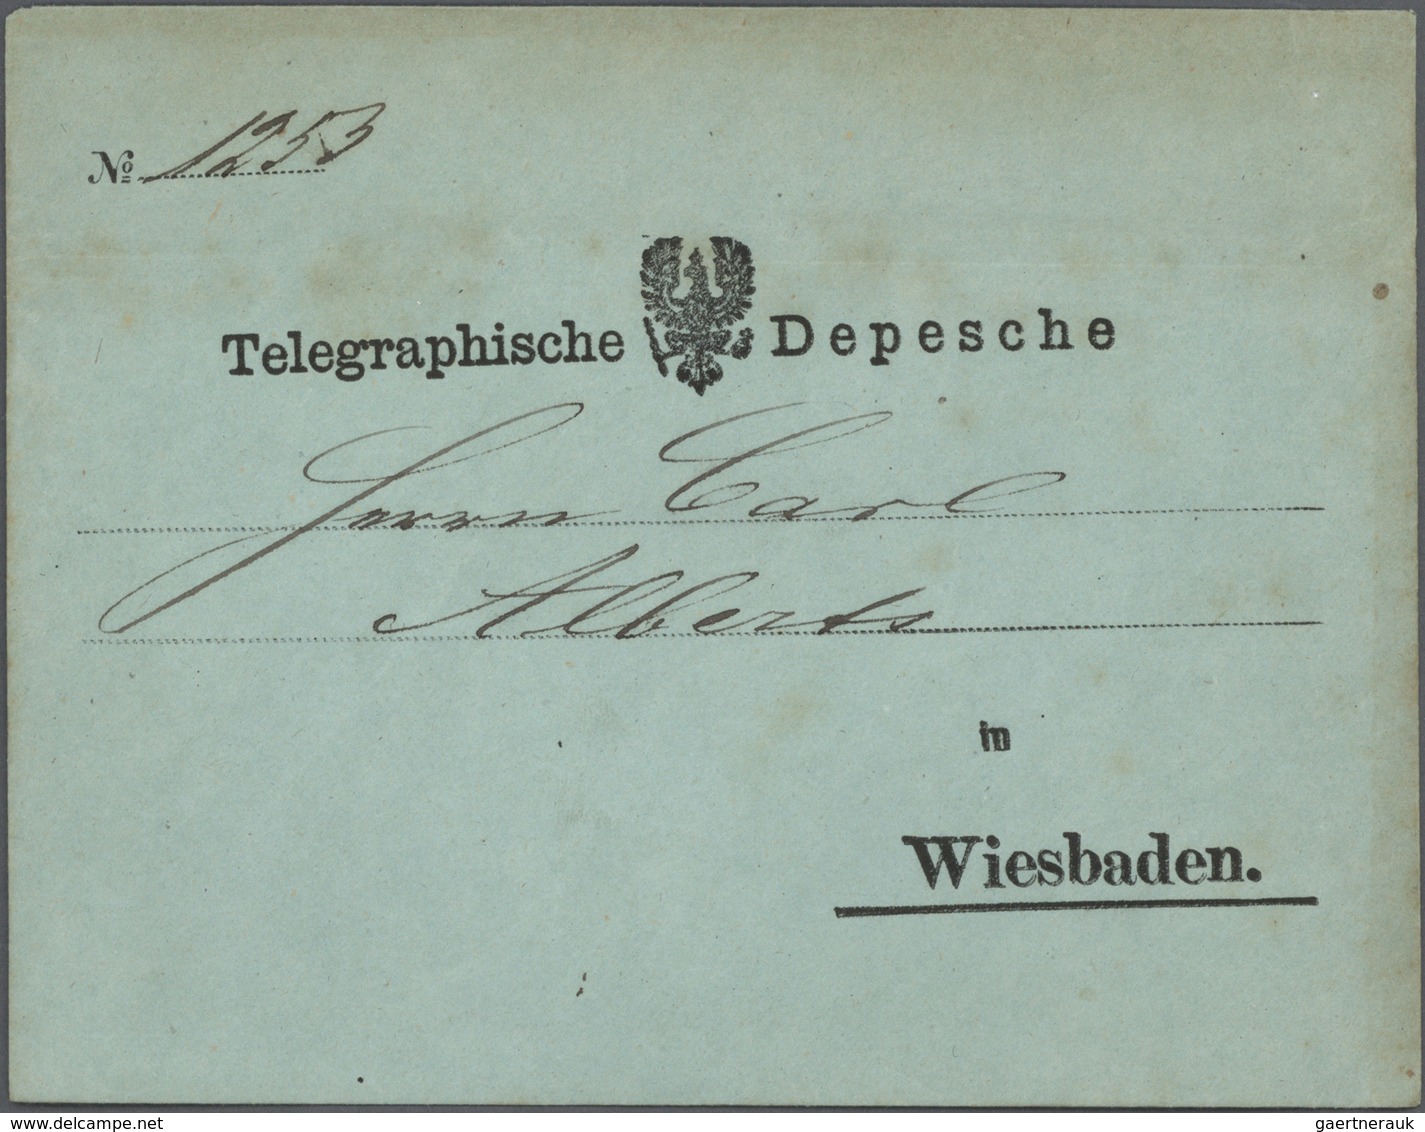 No 1253
Telegraphische Depesche
Herrn Carl
Alberts
in
Wiesbaden.
delcampe.net
gaertnerauk